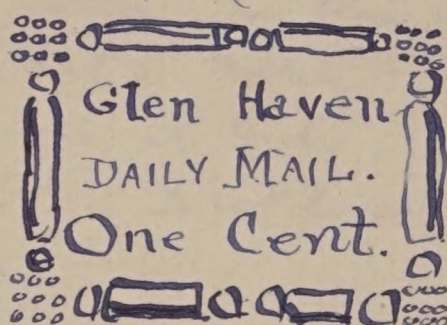 Glen Haven
DAILY MAIL.
One Cent.